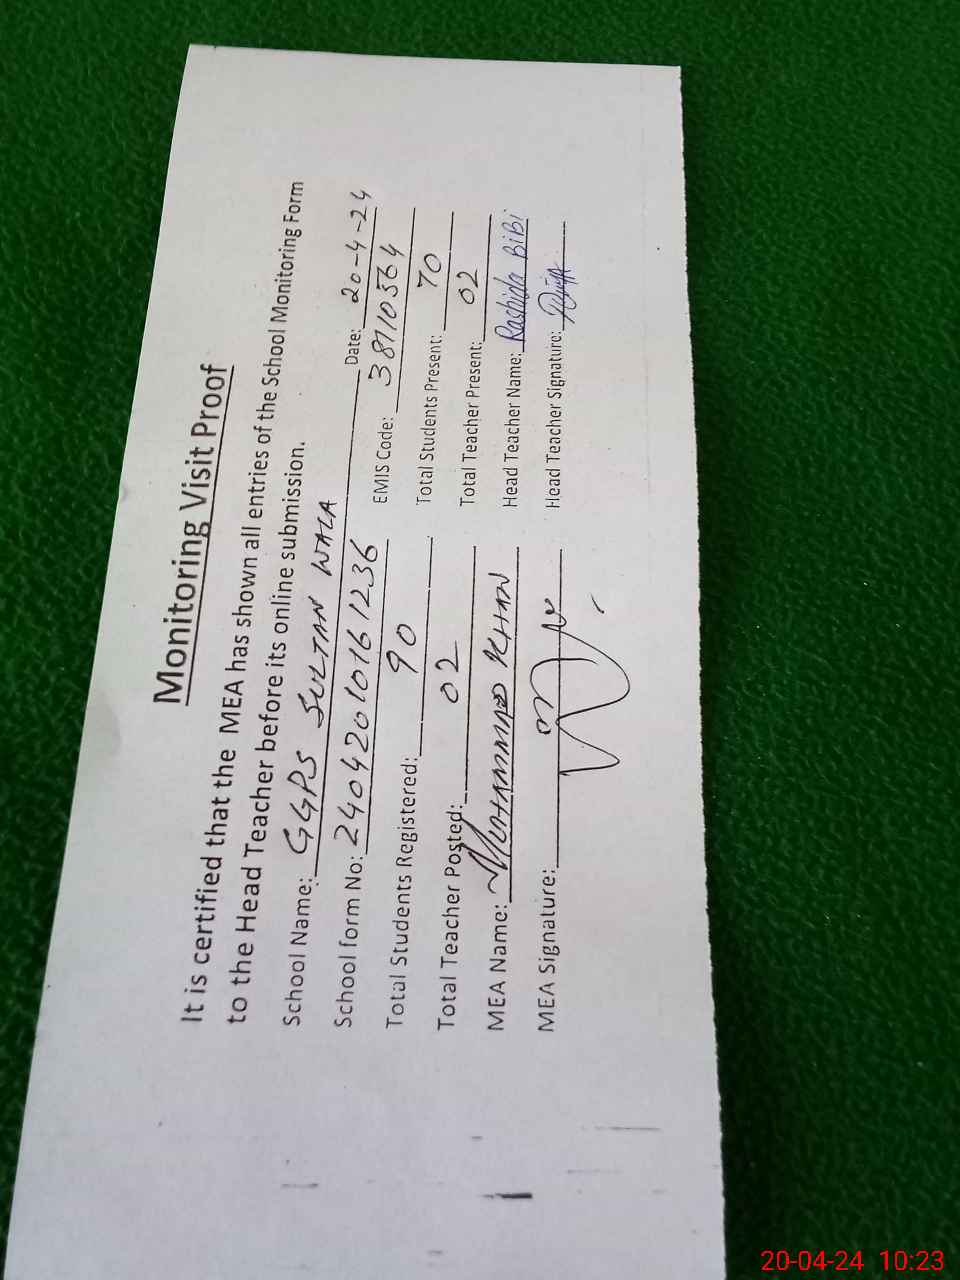 Monitoring Visit Proof
It is certified that the MEA has shown all entries of the School Monitoring Form
to the Head Teacher before its online submission.
School Name: GGPS SULTAN WALA Date: 20-4-24
School form No: 24042010161236 EMIS Code: 38110364
Total Students Registered: 90 Total Students Present: 70
Total Teacher Posted: 02 Total Teacher Present: 02
MEA Name: MUHAMMAD KHAN Head Teacher Name: Rashida BiBi
MEA Signature: Head Teacher Signature:
20-04-24 10:23